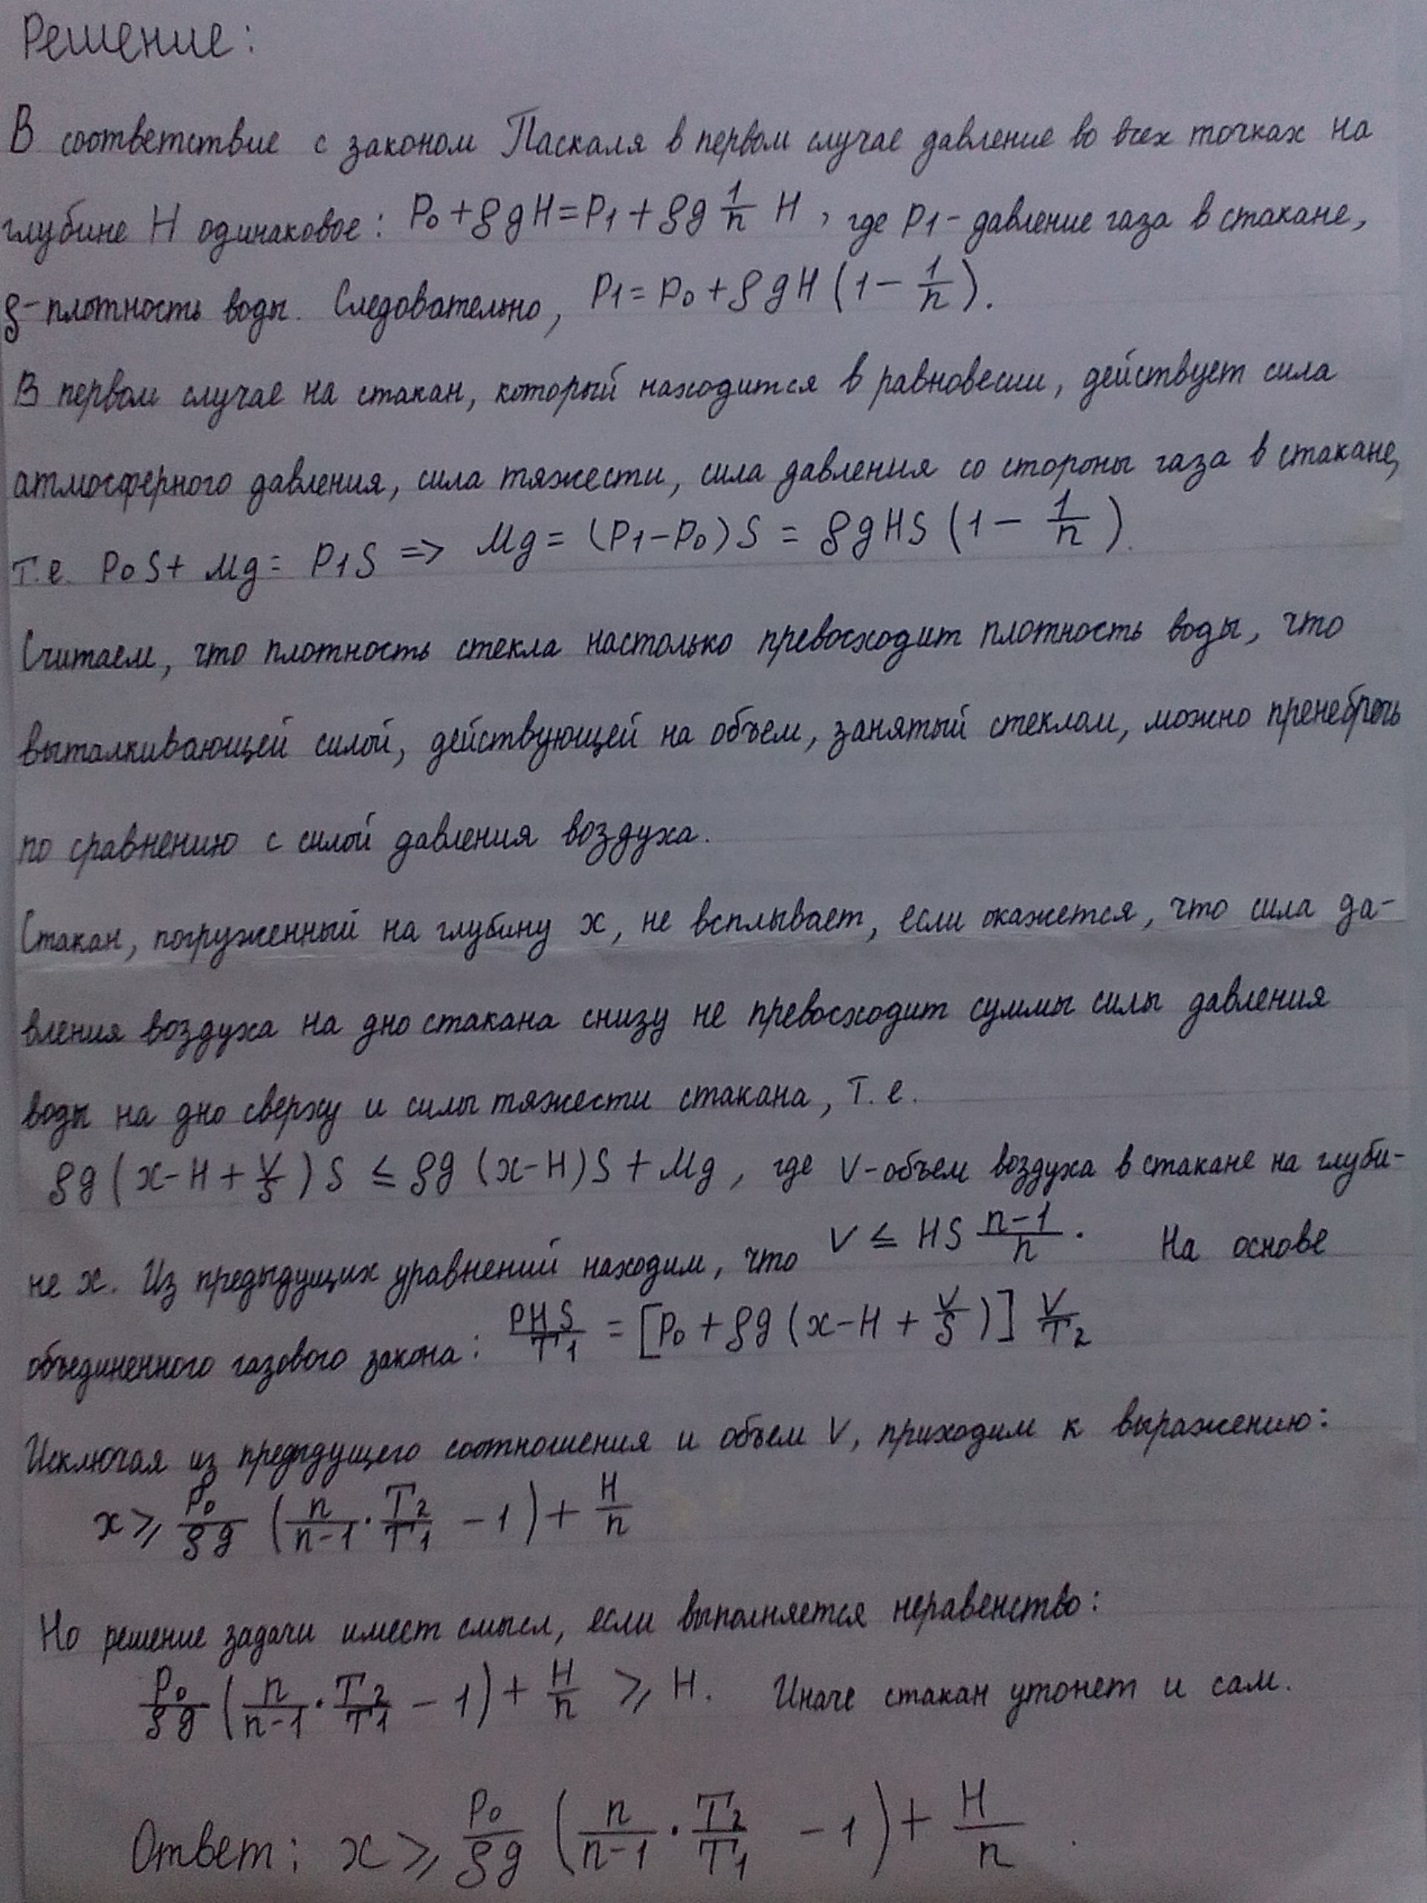 Решение:
В соответствие с законом Паскаля в первом случае давление во всех точках на
глубине H одинаковое: P₀ + ρgH = P1 + ρg 1/n H, где P1 - давление газа в стакане,
ρ - плотность воды. Следовательно, P1 = P₀ + ρgH (1 - 1/n).
В первом случае на стакан, который находится в равновесии, действует сила
атмосферного давления, сила тяжести, сила давления со стороны газа в стакане,
т.е. P₀S + Mg = P1S => Mg = (P1 - P₀)S = ρgHS (1 - 1/n).
Считаем, что плотность стекла настолько превосходит плотность воды, что
выталкивающей силой, действующей на объем, занятый стеклом, можно пренебречь
по сравнению с силой давления воздуха.
Стакан, погруженный на глубину x, не всплывает, если окажется, что сила да-
вления воздуха на дно стакана снизу не превосходит суммы силы давления
воды на дно сверху и силы тяжести стакана, т.е.
ρg (x - H + V/S) S ≤ ρg (x - H) S + Mg, где V - объем воздуха в стакане на глуби-
не x. Из предыдущих уравнений находим, что V ≤ HS (n-1)/n. На основе
объединенного газового закона: PHS/T1 = [P₀ + ρg (x - H + V/S)] V/T2
Исключая из предыдущего соотношения и объем V, приходим к выражению:
x ≥ P₀/ρg (n/(n-1) · T2/T1 - 1) + H/n
Но решение задачи имеет смысл, если выполняется неравенство:
P₀/ρg (n/(n-1) · T2/T1 - 1) + H/n ≥ H. Иначе стакан утонет и сам.
Ответ: x ≥ P₀/ρg (n/(n-1) · T2/T1 - 1) + H/n.